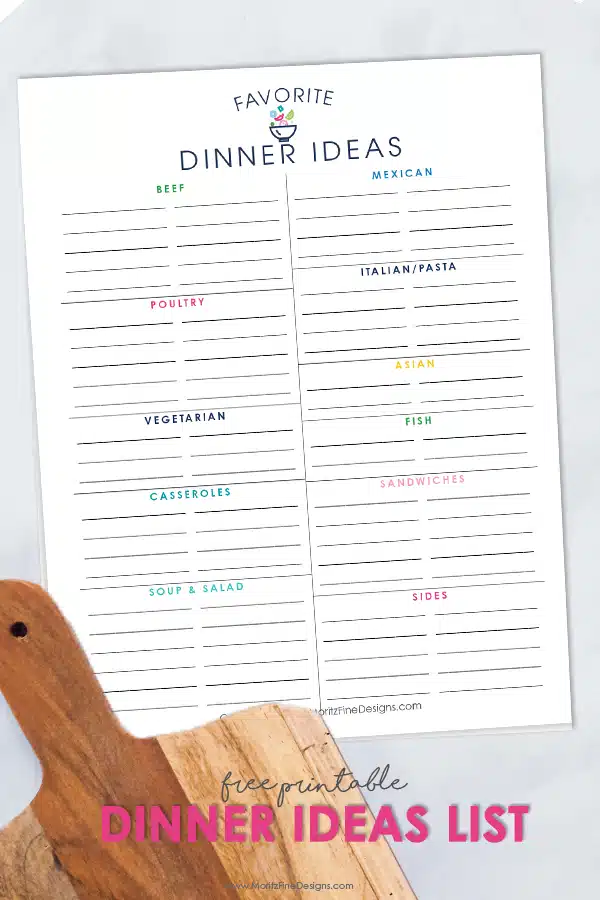 FAVORITE
DINNER IDEAS
BEEF
POULTRY
VEGETARIAN
CASSEROLES
SOUP & SALAD
MEXICAN
ITALIAN/PASTA
ASIAN
FISH
SANDWICHES
SIDES
MoritzFineDesigns.com
free printable
DINNER IDEAS LIST
www.MoritzFineDesigns.com